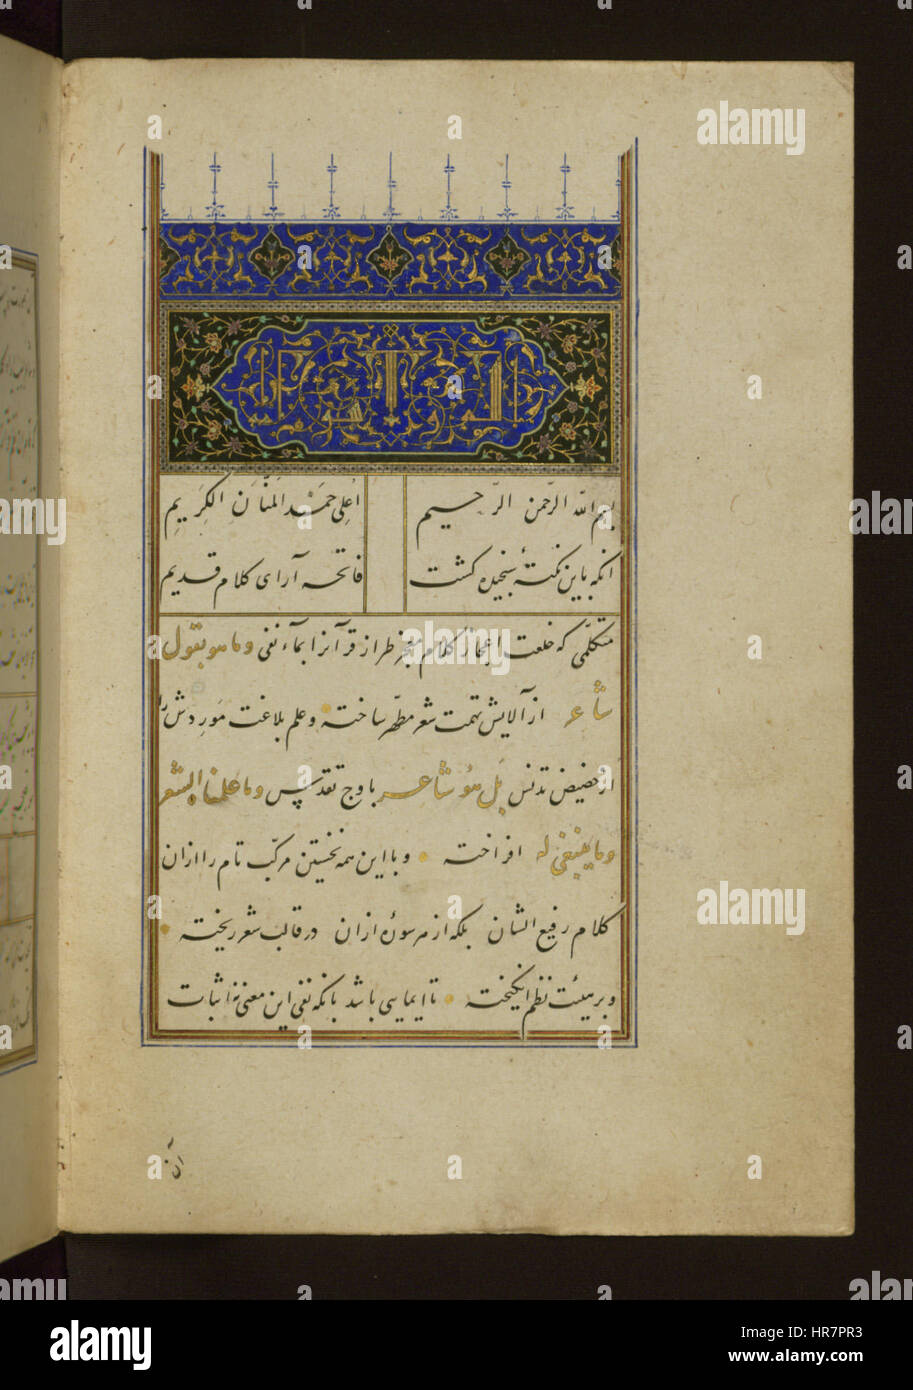 بسم الله الرّحمن الرّحیم اعلی حمد المنّان الکریم
انکه باین نکتهٔ سنجیده گشت فاتحه آرای کلام قدیم
متکلّمی که خلعت اعجاز کلام معجز طراز قرآنرا بماء نفی وما هو بقول
شاعر از آلایش تهمت شعر مطهّر ساخته وعلم بلاغت موردش را
از حضیض تدنس بل هو شاعر باوج تقدیس وما علمناه الشعر
وما ینبغی له افراخته وبا این همه نخستین مرکّب تام را ازان
کلام رفیع الشان بلکه از هر سورهٔ ازان در قالب شعر ریخته
وبر هیئت نظم انگیخته تا ایمایی باشد بانکه نفی این معنی نه اثبات
ان
a alamy
alamy
HR7PR3
www.alamy.com